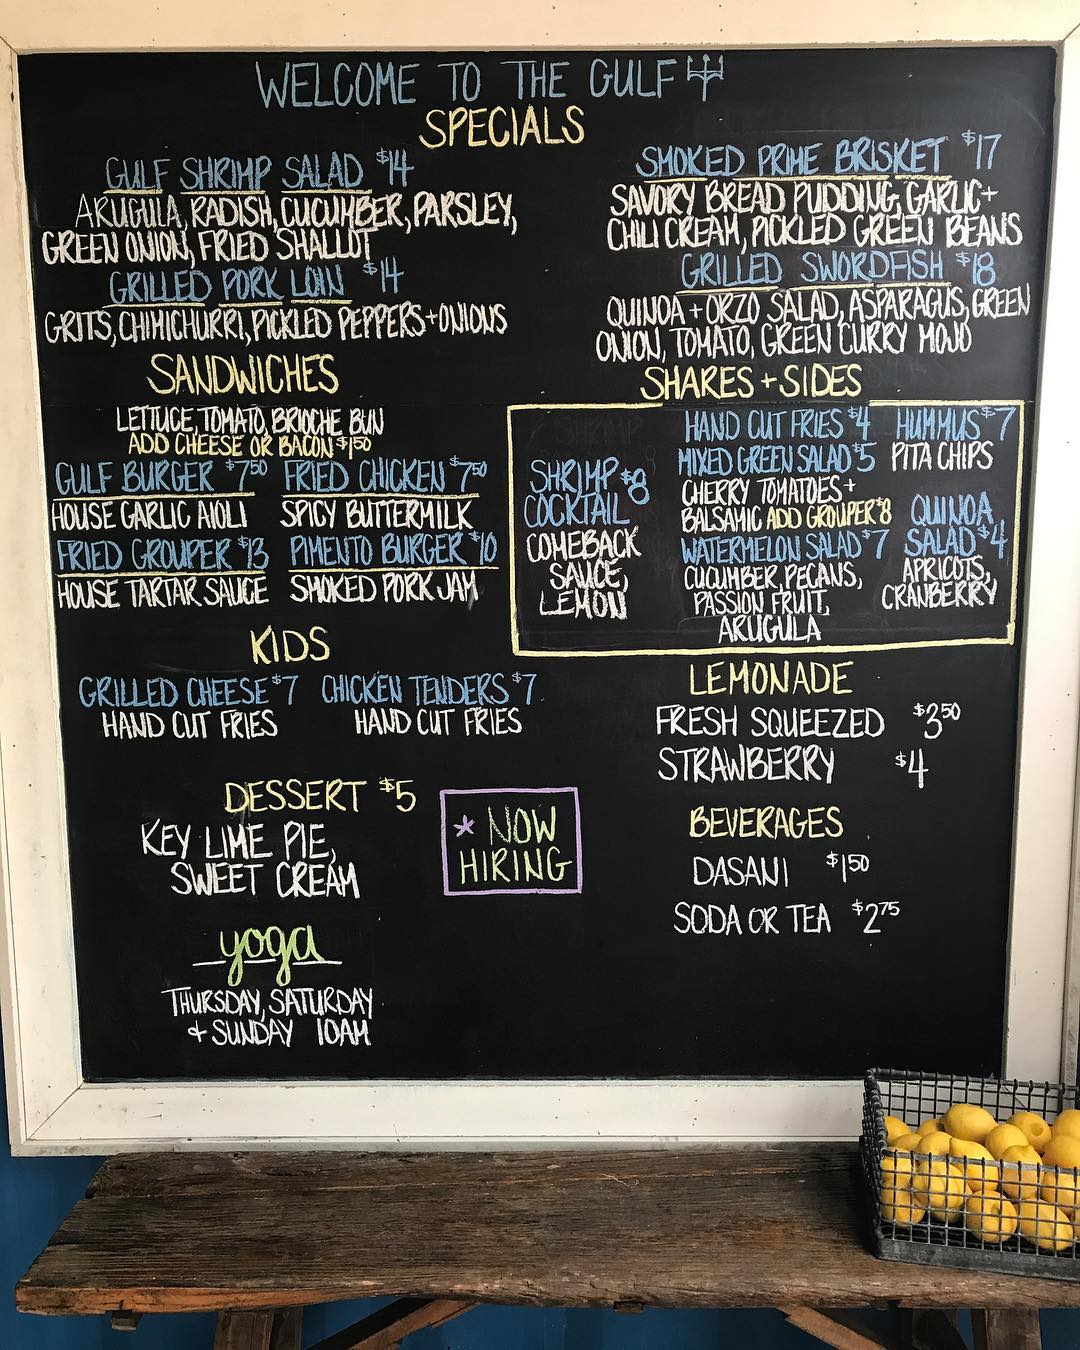 WELCOME TO THE GULF
SPECIALS
GULF SHRIMP SALAD $14
ARUGULA, RADISH, CUCUMBER, PARSLEY,
GREEN ONION, FRIED SHALLOT
GRILLED PORK LOIN $14
GRITS, CHIMICHURRI, PICKLED PEPPERS + ONIONS
SMOKED PRIME BRISKET $17
SAVORY BREAD PUDDING, GARLIC +
CHILI CREAM, PICKLED GREEN BEANS
GRILLED SWORDFISH $18
QUINOA + ORZO SALAD, ASPARAGUS, GREEN
ONION, TOMATO, GREEN CURRY MOJO
SANDWICHES
LETTUCE, TOMATO, BRIOCHE BUN
ADD CHEESE OR BACON $1.50
GULF BURGER $7.50
HOUSE GARLIC AIOLI
FRIED CHICKEN $7.50
SPICY BUTTERMILK
FRIED GROUPER $13
HOUSE TARTAR SAUCE
PIMENTO BURGER $10
SMOKED PORK JAM
SHARES + SIDES
SHRIMP $8
COCKTAIL
COMEBACK
SAUCE,
LEMON
HAND CUT FRIES $4
MIXED GREEN SALAD $5
CHERRY TOMATOES +
BALSAMIC ADD GROUPER $8
WATERMELON SALAD $7
CUCUMBER, PECANS,
PASSION FRUIT,
ARUGULA
HUMMUS $7
PITA CHIPS
QUINOA
SALAD $4
APRICOTS,
CRANBERRY
KIDS
GRILLED CHEESE $7
HAND CUT FRIES
CHICKEN TENDERS $7
HAND CUT FRIES
LEMONADE
FRESH SQUEEZED $3.50
STRAWBERRY $4
DESSERT $5
KEY LIME PIE,
SWEET CREAM
* NOW
HIRING
BEVERAGES
DASANI $1.50
SODA OR TEA $2.75
yoga
THURSDAY, SATURDAY
+ SUNDAY 10AM